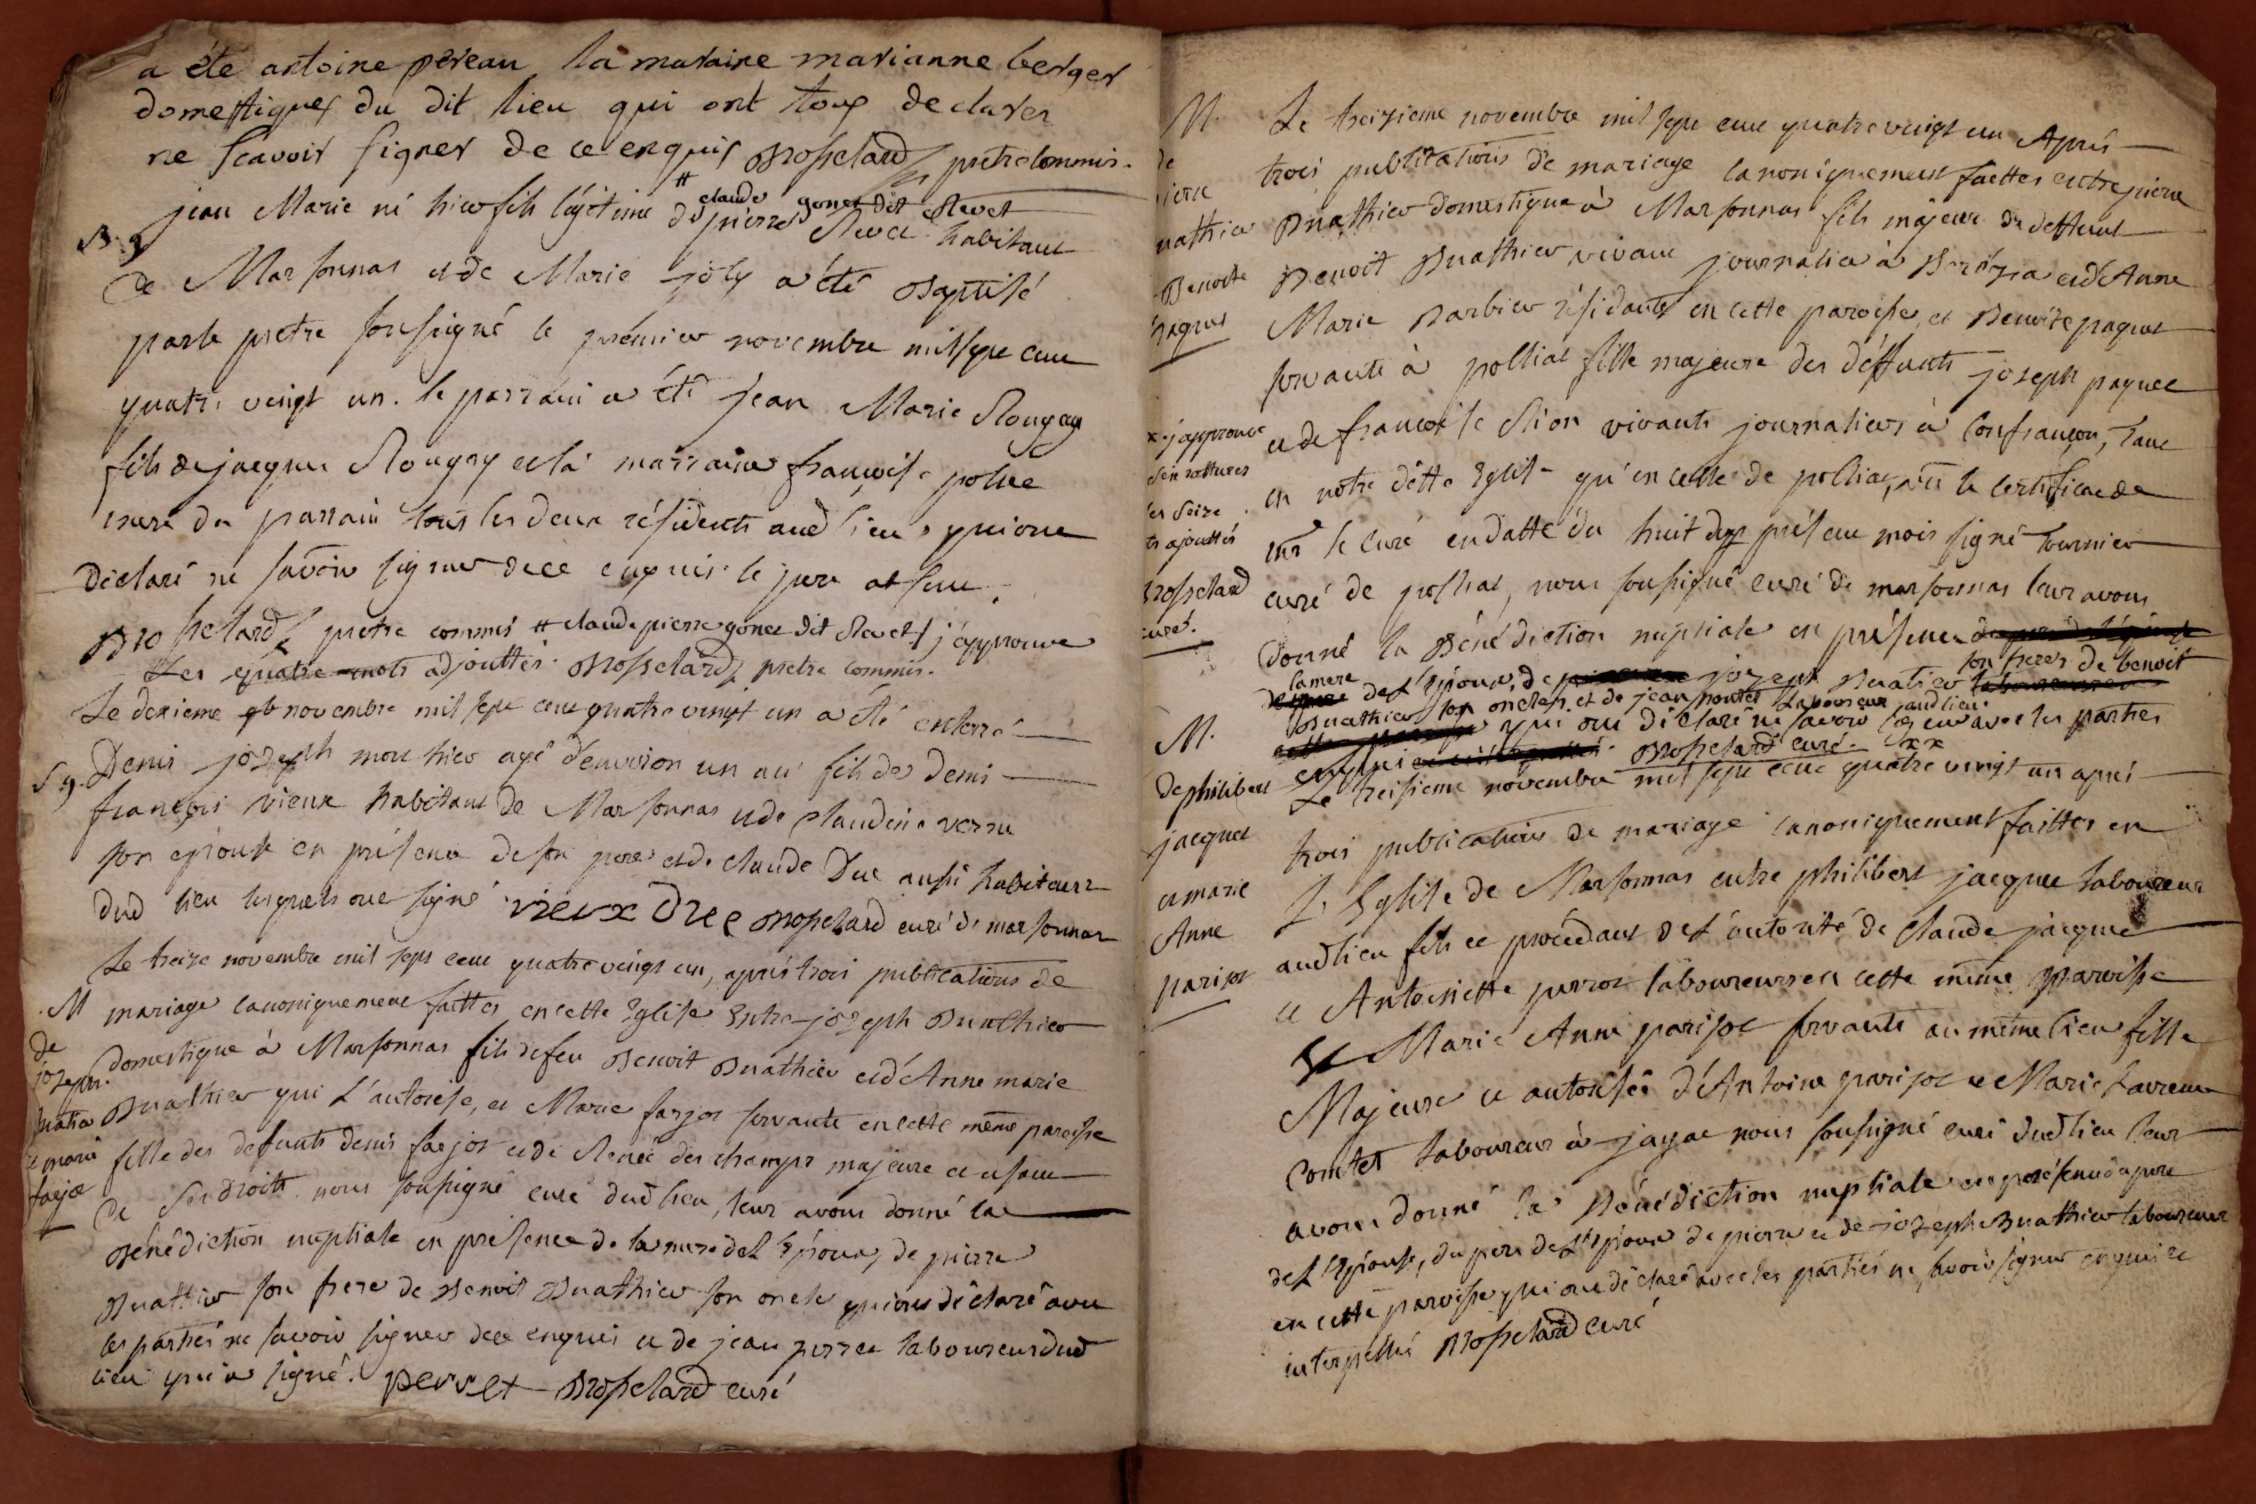 a été antoine pereau la maraine marianne berger
domestiques du dit lieu qui ont tous declarer
ne scavoir signer de ce enquis Brosselard prêtre commis.
B. 9
jean Marie né hier fils légitime de # claude pierre gonet dit Revet habitant
de Marsonnas et de Marie joly a été Baptisé
par le prêtre soussigné le prémier novembre mil sept cent
quatre vingt un. le parrain a été jean Marie Rougay
fils de jacques Rougay et la marraine françoise
mere du parrain tous les deux résidents aud lieu, qui ont
déclaré ne savoir signer de ce enquis
Brosselard prêtre commis # claude pierre gonet dit Revet j'approuve
Les quatre mots adjouttés. Brosselard prêtre commis.
Le novembre mil sept cent quatre vingt un a été enterré
S 9.
Denis jozeph agé d'environ un an fils de Denis
françois vieux habitant de Marsonnas et de Claudine
son epouse en présence de son pere et de claude Duc aussi habitant
dud lieu lesquels ont signé vieux Duc Brosselard curé de marsonnas
Le treize novembre mil sept cent quatre vingt un, après trois publications de
M
mariage canoniquement faittes en cette Eglise Entre jozeph Buathier
de
jozeph
domestique à Marsonnas fils de feu Benoit Buathier et d'Anne marie
Buathier
Buathier qui L'autorise, et Marie farjot servante en cette même paroisse
et marie
fille des defunts denis farjot et de Renée deschamps majeure et usant
farjot
de ses droits. nous soussigné curé dud lieu, leur avons donné la
Bénédiction nuptiale en présence de la mere de L'Epoux, de pierre
Buathier son frere de Benoit Buathier son oncle qui ont déclaré avec
les parties ne savoir signer de ce enquis et de jean perret laboureur dud
lieu qui a signé. perret Brosselard curé
M.
de
pierre
Buathier
Benoite
paquet
Le treizieme novembre mil sept cent quatre vingt un Après
trois publications de mariage canoniquement faittes entre pierre
Buathier domestique à Marsonnas fils majeur de deffunt
Benoit Buathier vivant journalier à et d'Anne
Marie Barbier résidante en cette paroisse, et Benoite paquet
servante à polliat fille majeure des déffunts jozeph paquet
et de francoise vivants journaliers à Confrançon, tant
en notre dette Eglise qu'en celle de polliat, vu le certificat de
mr le curé en datte du huit du présent mois signé tournier
curé de polliat, nous soussigné curé de marsonnas leur avons
donné la Bénédiction nuptiale en présence
la mere de L'Epoux, de jozeph Buatier son frere, de benoit
Buathier son oncle et de jean laboureur aud lieu.
qui ont déclaré ne savoir signer avec les parties
enquis Brosselard curé. xx
x. j'approuve
ratures
les seize
ts ajouttés
Brosselard
curé.
M.
de philibert
jacquet
et marie
Anne
parisot
Le treisieme novembre mil sept cent quatre vingt un après
trois publications de mariage canoniquement faittes en
L'Eglise de Marsonnas entre philibert jacquet laboureur
aud lieu fils et procédant de L'autorité de Claude jacquet
et Antoinette perrot laboureurs en cette même paroisse
Et Marie Anne parisot servante au même lieu fille
Majeure et autorisée d'Antoine parisot et Marie Laurence
Comtet laboureur à jayat nous soussigné curé dud lieu leur
avons donné la Bénédiction nuptiale en présence du pere
de L'Epouse, du pere de L'Epoux de pierre et de jozeph Buathier laboureur
en cette paroisse qui ont déclaré avec les parties ne savoir signer enquis et
interpellés Brosselard curé